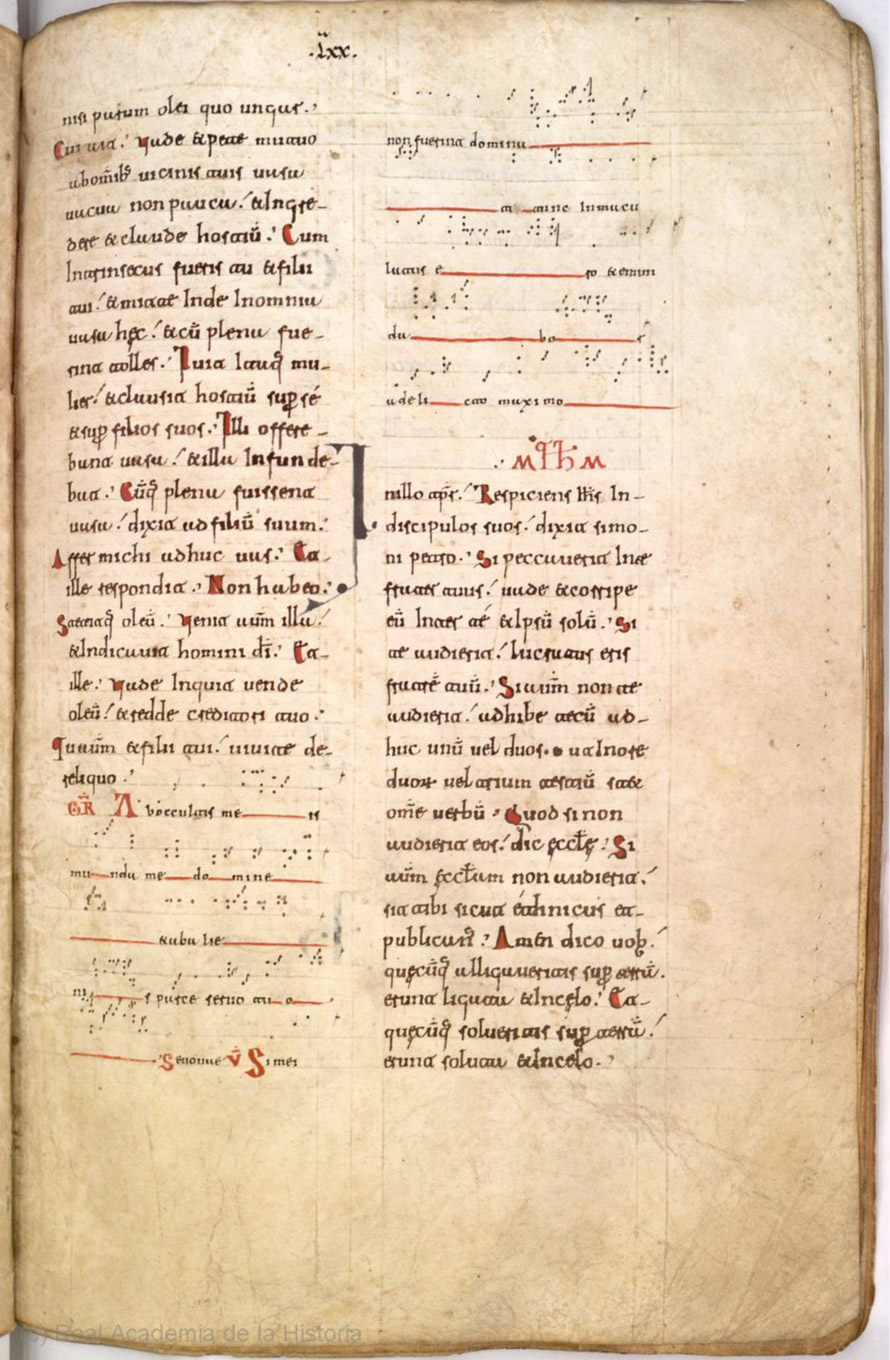 .lxx.
nisi parum olei quo ungar.
Cui ait. Vade & pete mutuo
ab omib; uicinis tuis uasa
uacua non pauca. & Ingre-
dere & claude hostiū. Cum
Intrinsecus fueris tu & filii
tui. & mitte Inde Inomnia
uasa hęc. & cū plena fue-
rint tolles. Iuit Itaq; mu-
lier. & clausit hostiū sup sé
& sup filios suos. Illi offere-
bant uasa. & illa Infunde-
bat. Cūq; plena fuissent
uasa. dixit ad filiū suum.
Affer michi adhuc uas. Et
ille respondit. Non habeo.
Stetitq; oleū. Uenit aūm illa.
& Indicauit homini dī. Et
ille. Vade Inquit uende
oleū. & redde creditori tuo.
Tu aūm & filii tui. uiuite de
reliquo.
GR̄ Ab occultis me is
munda me domine
& ab alie
nis parce seruo tuo
Senouae V̄ Si mei
non fuerint domina
ti tunc Inmacu
latus ero & emun
da bor
a delicto maximo
MTHM
In illo tp̄r. Respiciens Ih̄s In-
discipulos suos. dixit simo-
ni petro. Si peccauerit Inte
frater tuus. uade & corripe
eū Inter té & Ipsū solū. Si
te audierit. lucratus eris
fratrē tuū. Si aūm non te
audierit. adhibe tecū ad-
huc unū uel duos. ut Inore
duorum uel trium testiū stet
om̄e uerbū. Quod si non
audierit eos. dic ęcctę. Si
aūm ęcctam non audierit.
sit tibi sicut éthnicus et
publicanꝰ. Amen dico uob.
quęcūq; alligaueritis sup terrā.
erunt ligata & Incęlo. Et
quęcūq; solueritis sup terrā.
erunt soluta & Incęlo.
(c) Real Academia de la Historia